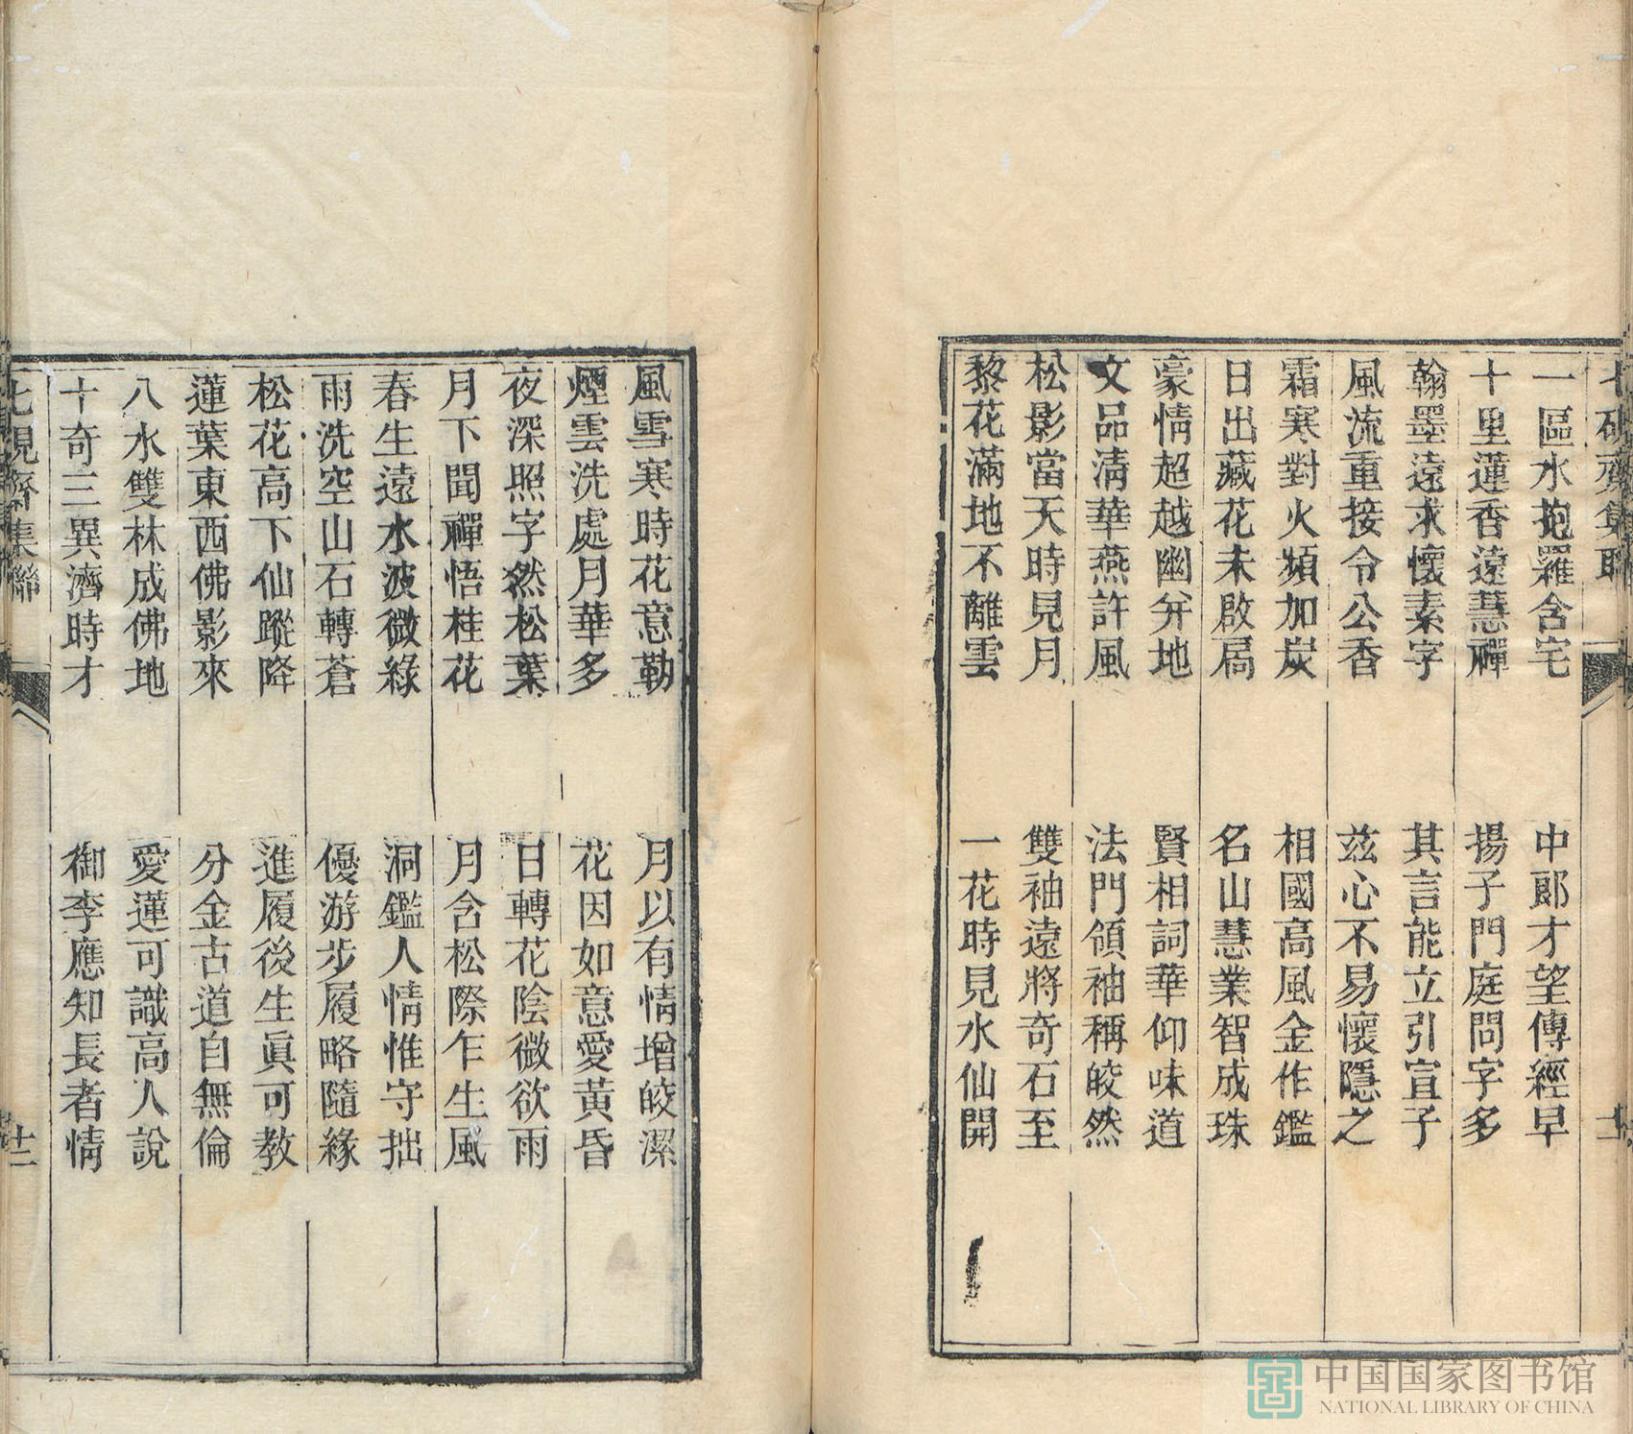 一區水抱羅含宅　中郞才望傳經早
十里蓮香遠慧禪　揚子門庭問字多
翰墨遠求懷素字　其言能立引宣子
風流重接令公香　兹心不易懷隱之
霜寒對火頻加炭　相國高風金作鑑
日出藏花未啟扃　名山慧業智成珠
豪情超越幽并地　賢相詞華仰味道
文品清華燕許風　法門領袖稱皎然
松影當天時見月　雙袖遠將奇石至
黎花滿地不離雲　一花時見水仙開
風雪寒時花意勒　月以有情增皎潔
煙雲洗處月華多　花因如意愛黃昏
夜深照字然松葉　日轉花陰微欲雨
月下聞禪悟桂花　月含松際乍生風
春生遠水波微綠　洞鑑人情惟守拙
雨洗空山石轉蒼　優游步履略隨緣
松花高下仙蹤降　進履後生眞可教
蓮葉東西佛影來　分金古道自無倫
八水雙林成佛地　愛蓮可識高人說
十奇三異濟時才　御李應知長者情
七硯齋集聯　十二
中国国家图书馆
NATIONAL LIBRARY OF CHINA